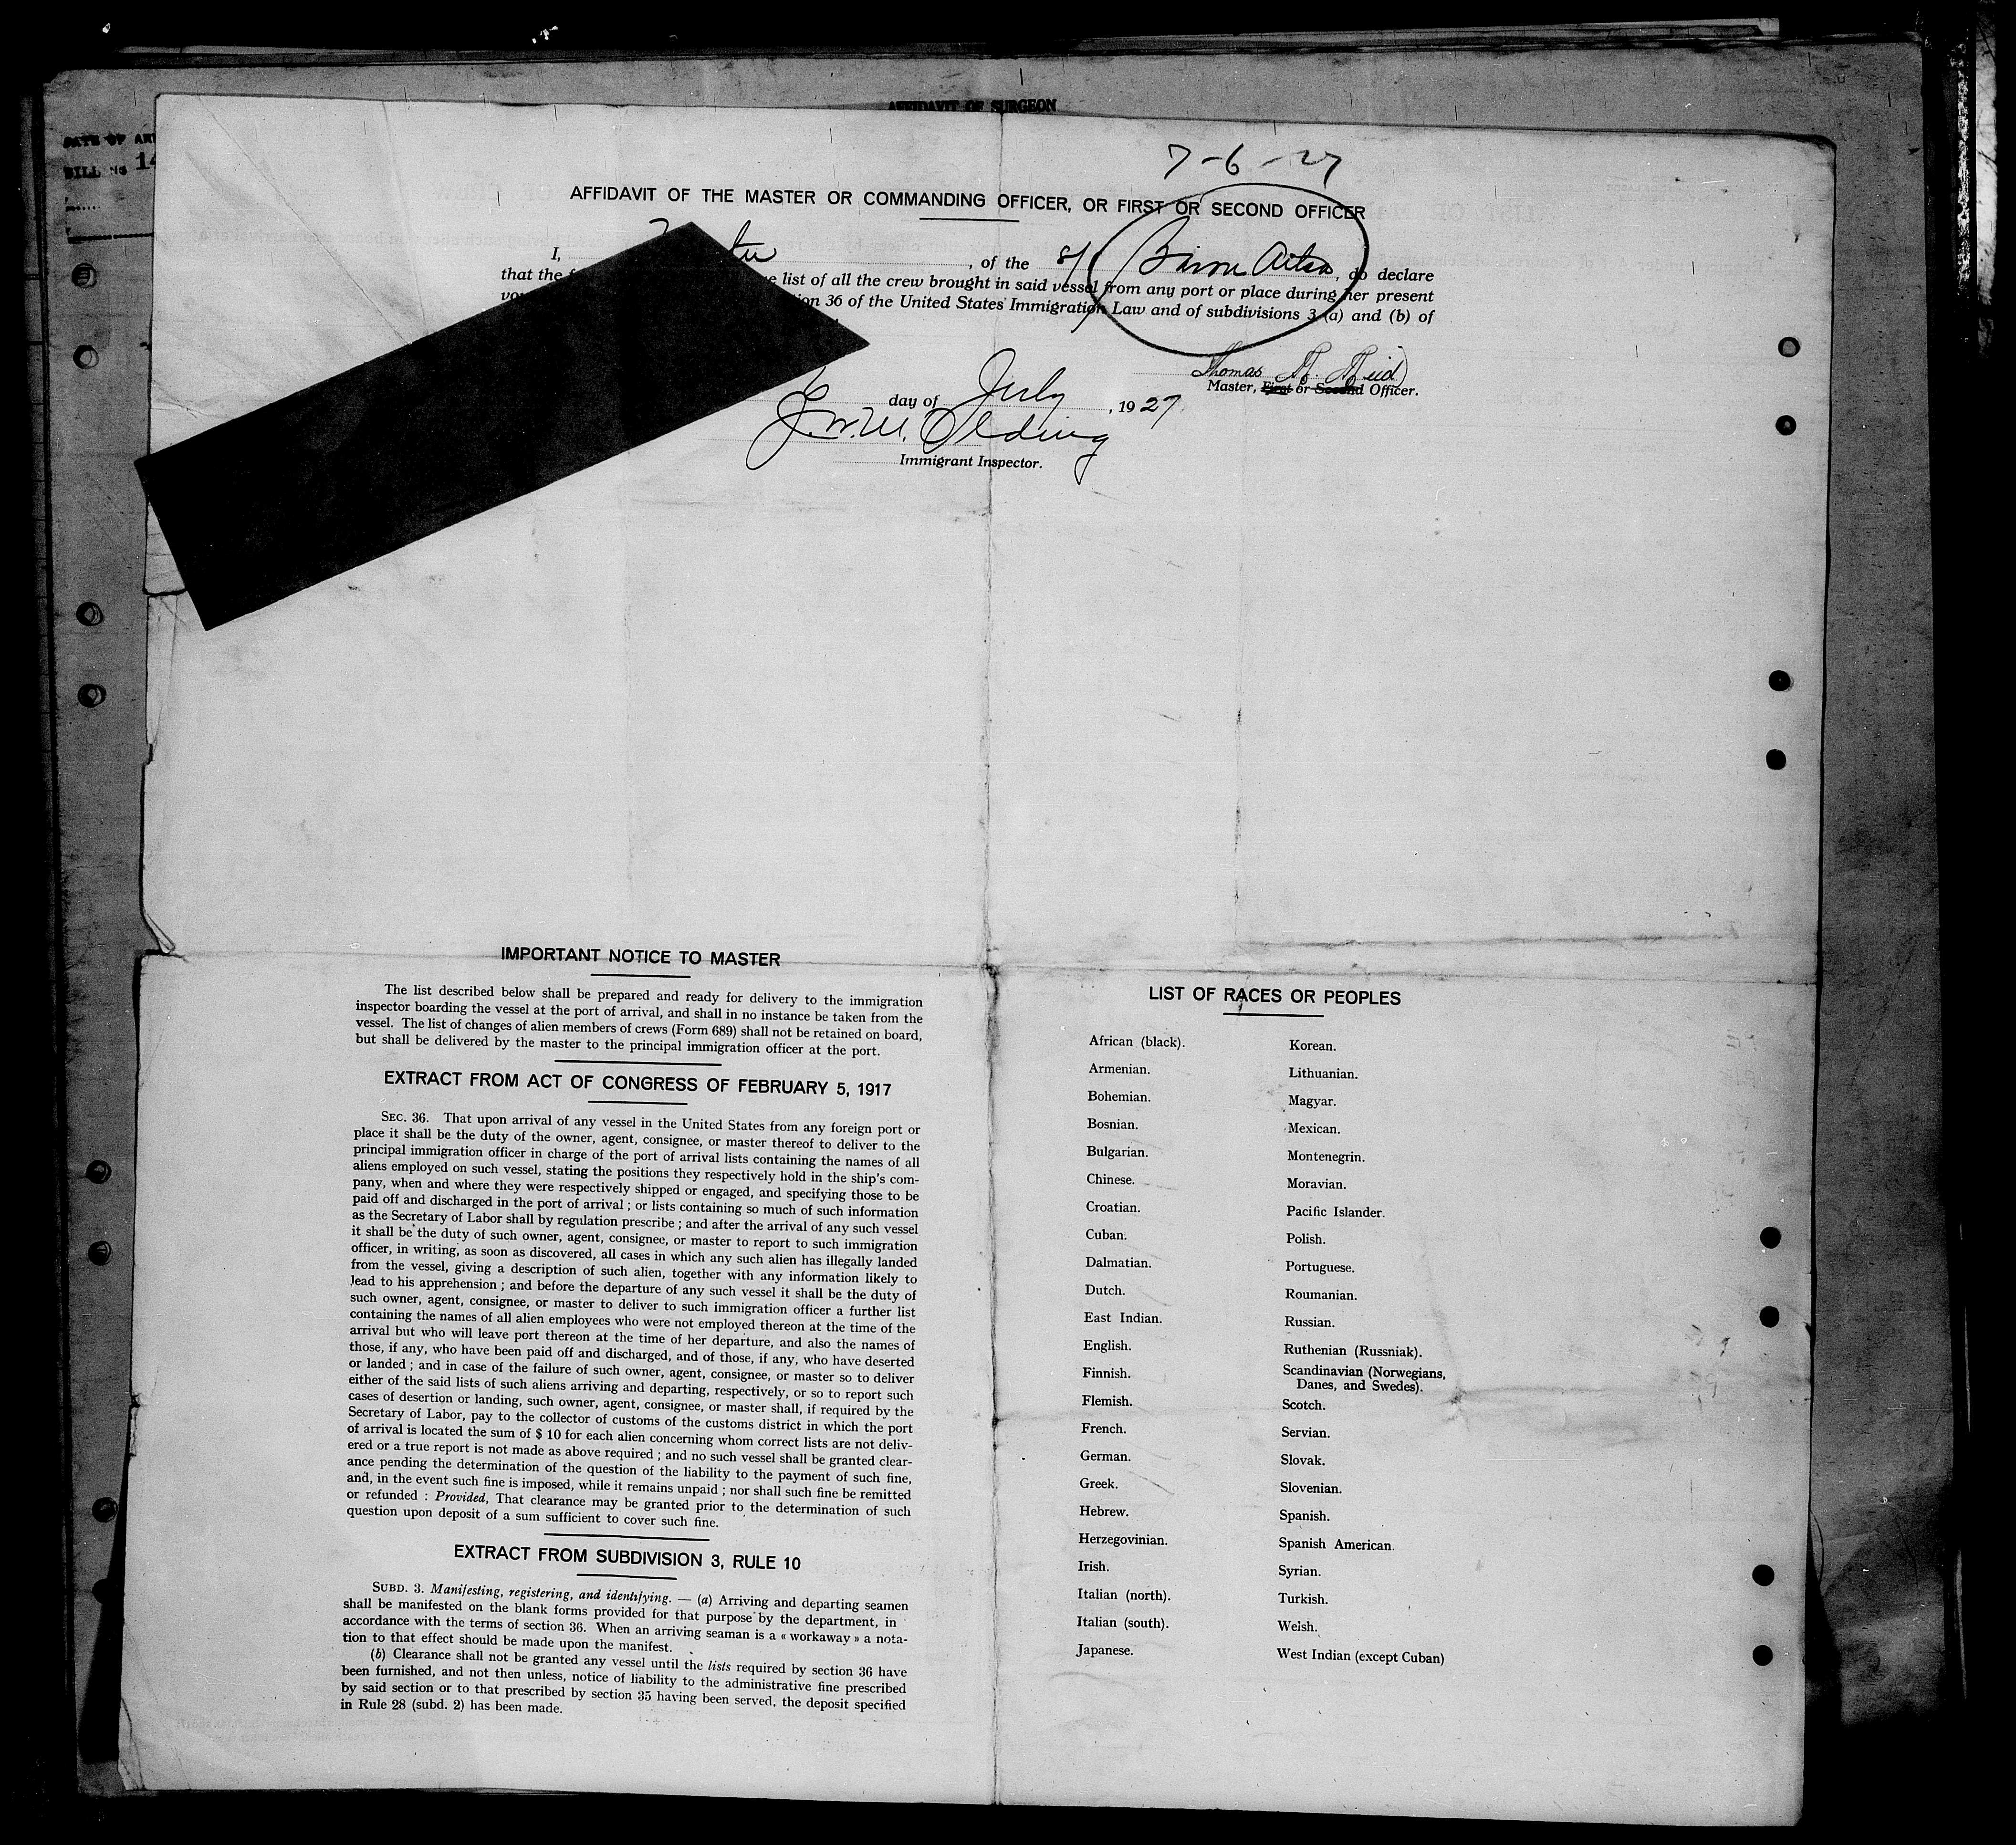 AFFIDAVIT OF SURGEON
DATE OF AR
BILL NO 14
7-6-27
AFFIDAVIT OF THE MASTER OR COMMANDING OFFICER, OR FIRST OR SECOND OFFICER
I, , of the S/ Baron Ailsa, do declare
that the f e list of all the crew brought in said vessel from any port or place during her present
voy ion 36 of the United States Immigration Law and of subdivisions 3 (a) and (b) of
Thomas Reid
Master, First or Second Officer.
6 day of July, 1927
Olding
Immigrant Inspector.
IMPORTANT NOTICE TO MASTER
The list described below shall be prepared and ready for delivery to the immigration
inspector boarding the vessel at the port of arrival, and shall in no instance be taken from the
vessel. The list of changes of alien members of crews (Form 689) shall not be retained on board,
but shall be delivered by the master to the principal immigration officer at the port.
EXTRACT FROM ACT OF CONGRESS OF FEBRUARY 5, 1917
SEC. 36. That upon arrival of any vessel in the United States from any foreign port or
place it shall be the duty of the owner, agent, consignee, or master thereof to deliver to the
principal immigration officer in charge of the port of arrival lists containing the names of all
aliens employed on such vessel, stating the positions they respectively hold in the ship's com-
pany, when and where they were respectively shipped or engaged, and specifying those to be
paid off and discharged in the port of arrival ; or lists containing so much of such information
as the Secretary of Labor shall by regulation prescribe ; and after the arrival of any such vessel
it shall be the duty of such owner, agent, consignee, or master to report to such immigration
officer, in writing, as soon as discovered, all cases in which any such alien has illegally landed
from the vessel, giving a description of such alien, together with any information likely to
lead to his apprehension ; and before the departure of any such vessel it shall be the duty of
such owner, agent, consignee, or master to deliver to such immigration officer a further list
containing the names of all alien employees who were not employed thereon at the time of the
arrival but who will leave port thereon at the time of her departure, and also the names of
those, if any, who have been paid off and discharged, and of those, if any, who have deserted
or landed ; and in case of the failure of such owner, agent, consignee, or master so to deliver
either of the said lists of such aliens arriving and departing, respectively, or so to report such
cases of desertion or landing, such owner, agent, consignee, or master shall, if required by the
Secretary of Labor, pay to the collector of customs of the customs district in which the port
of arrival is located the sum of $ 10 for each alien concerning whom correct lists are not deliv-
ered or a true report is not made as above required ; and no such vessel shall be granted clear-
ance pending the determination of the question of the liability to the payment of such fine,
and, in the event such fine is imposed, while it remains unpaid ; nor shall such fine be remitted
or refunded : Provided, That clearance may be granted prior to the determination of such
question upon deposit of a sum sufficient to cover such fine.
EXTRACT FROM SUBDIVISION 3, RULE 10
SUBD. 3. Manifesting, registering, and identifying. — (a) Arriving and departing seamen
shall be manifested on the blank forms provided for that purpose by the department, in
accordance with the terms of section 36. When an arriving seaman is a « workaway » a nota-
tion to that effect should be made upon the manifest.
(b) Clearance shall not be granted any vessel until the lists required by section 36 have
been furnished, and not then unless, notice of liability to the administrative fine prescribed
by said section or to that prescribed by section 35 having been served, the deposit specified
in Rule 28 (subd. 2) has been made.
LIST OF RACES OR PEOPLES
African (black).
Armenian.
Bohemian.
Bosnian.
Bulgarian.
Chinese.
Croatian.
Cuban.
Dalmatian.
Dutch.
East Indian.
English.
Finnish.
Flemish.
French.
German.
Greek.
Hebrew.
Herzegovinian.
Irish.
Italian (north).
Italian (south).
Japanese.
Korean.
Lithuanian.
Magyar.
Mexican.
Montenegrin.
Moravian.
Pacific Islander.
Polish.
Portuguese.
Roumanian.
Russian.
Ruthenian (Russniak).
Scandinavian (Norwegians,
Danes, and Swedes).
Scotch.
Servian.
Slovak.
Slovenian.
Spanish.
Spanish American.
Syrian.
Turkish.
Welsh.
West Indian (except Cuban)